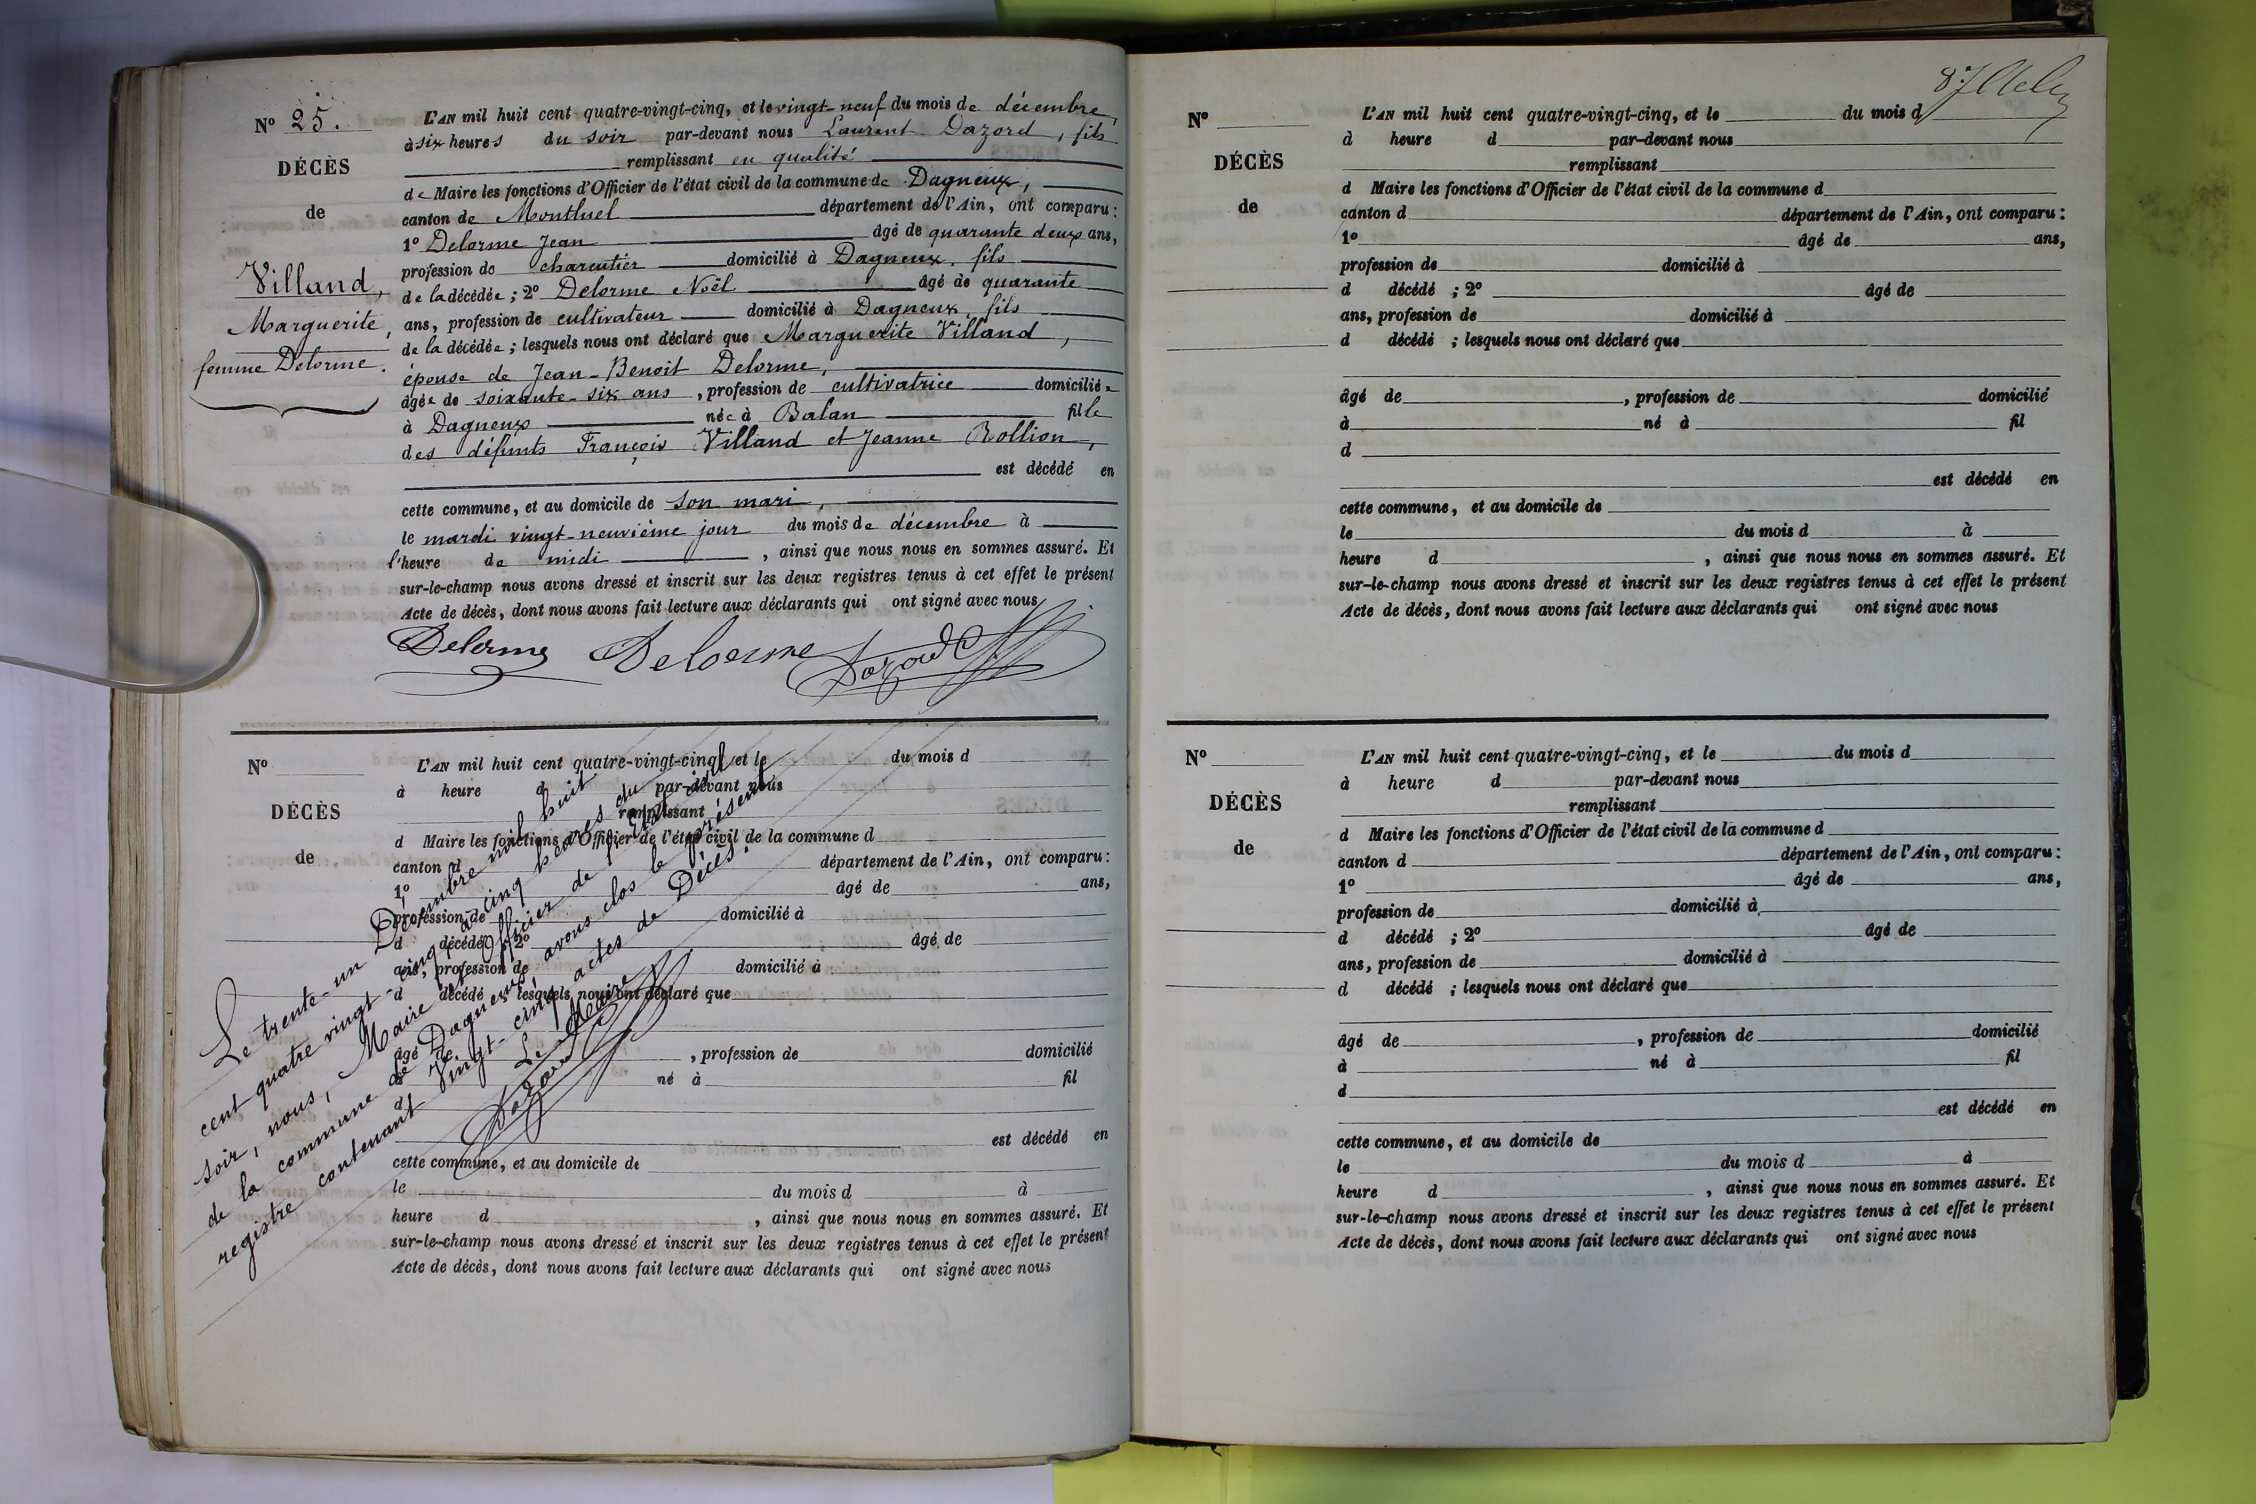 Nº 25.
DÉCÈS
de
Villand,
Marguerite,
femme Delorme.
L'AN mil huit cent quatre-vingt-cinq, et le vingt-neuf du mois de décembre,
à six heures du soir par-devant nous Laurent Dazord, fils
remplissant en qualité
de Maire les fonctions d'Officier de l'état civil de la commune de Dagneux,
canton de Montluel département de l'Ain, ont comparu :
1º Delorme Jean âgé de quarante deux ans,
profession de charcutier domicilié à Dagneux, fils
de la décédée ; 2º Delorme Noël âgé de quarante
ans, profession de cultivateur domicilié à Dagneux, fils
de la décédée ; lesquels nous ont déclaré que Marguerite Villand,
épouse de Jean-Benoit Delorme,
âgée de soixante-six ans, profession de cultivatrice domiciliée
à Dagneux née à Balan fille
des défunts François Villand et Jeanne Rollion,
est décédé en
cette commune, et au domicile de son mari,
le mardi vingt-neuvième jour du mois de décembre à
l'heure de midi, ainsi que nous nous en sommes assuré. Et
sur-le-champ nous avons dressé et inscrit sur les deux registres tenus à cet effet le présent
Acte de décès, dont nous avons fait lecture aux déclarants qui ont signé avec nous
Delorme Delorme Dazord
Nº
DÉCÈS
de
L'AN mil huit cent quatre-vingt-cinq, et le du mois d
à heure d par-devant nous
remplissant
d Maire les fonctions d'Officier de l'état civil de la commune d
canton d département de l'Ain, ont comparu :
1º âgé de ans,
profession de domicilié à
d décédé ; 2º âgé de
ans, profession de domicilié à
d décédé ; lesquels nous ont déclaré que
âgé de , profession de domicilié
à né à fil
d
est décédé en
cette commune, et au domicile de
le du mois d à
heure d , ainsi que nous nous en sommes assuré. Et
sur-le-champ nous avons dressé et inscrit sur les deux registres tenus à cet effet le présent
Acte de décès, dont nous avons fait lecture aux déclarants qui ont signé avec nous
Le trente-un Décembre mil huit
cent quatre vingt-cinq à cinq heures du
soir, nous, Maire et Officier de l'Etat civil
de la commune de Dagneux, avons clos le présent
registre contenant Vingt-cinq actes de Décès.
Le Maire
Dazord
87
Nº
DÉCÈS
de
L'AN mil huit cent quatre-vingt-cinq, et le du mois d
à heure d par-devant nous
remplissant
d Maire les fonctions d'Officier de l'état civil de la commune d
canton d département de l'Ain, ont comparu :
1º âgé de ans,
profession de domicilié à
d décédé ; 2º âgé de
ans, profession de domicilié à
d décédé ; lesquels nous ont déclaré que
âgé de , profession de domicilié
à né à fil
d
est décédé en
cette commune, et au domicile de
le du mois d à
heure d , ainsi que nous nous en sommes assuré. Et
sur-le-champ nous avons dressé et inscrit sur les deux registres tenus à cet effet le présent
Acte de décès, dont nous avons fait lecture aux déclarants qui ont signé avec nous
Nº
DÉCÈS
de
L'AN mil huit cent quatre-vingt-cinq, et le du mois d
à heure d par-devant nous
remplissant
d Maire les fonctions d'Officier de l'état civil de la commune d
canton d département de l'Ain, ont comparu :
1º âgé de ans,
profession de domicilié à
d décédé ; 2º âgé de
ans, profession de domicilié à
d décédé ; lesquels nous ont déclaré que
âgé de , profession de domicilié
à né à fil
d
est décédé en
cette commune, et au domicile de
le du mois d à
heure d , ainsi que nous nous en sommes assuré. Et
sur-le-champ nous avons dressé et inscrit sur les deux registres tenus à cet effet le présent
Acte de décès, dont nous avons fait lecture aux déclarants qui ont signé avec nous